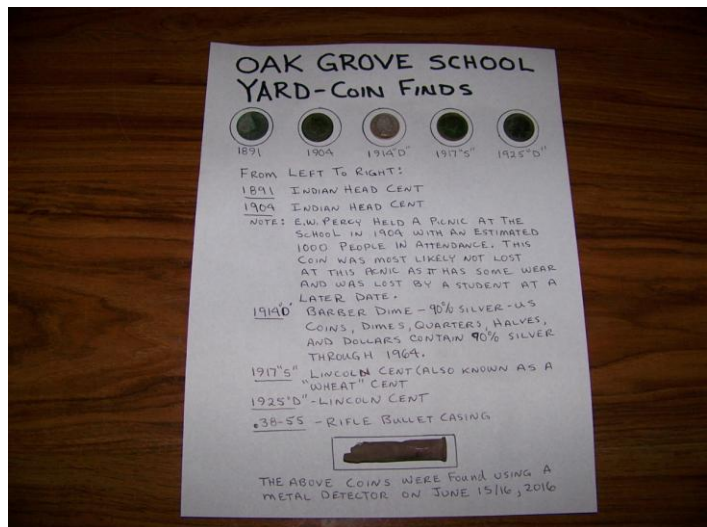 OAK GROVE SCHOOL
YARD-COIN FINDS
1891 1904 1914"D" 1917"S" 1925"D"
FROM LEFT TO RIGHT:
1891 INDIAN HEAD CENT
1904 INDIAN HEAD CENT
NOTE: E.W. PERCY HELD A PICNIC AT THE
SCHOOL IN 1904 WITH AN ESTIMATED
1000 PEOPLE IN ATTENDANCE. THIS
COIN WAS MOST LIKELY NOT LOST
AT THIS PICNIC AS IT HAS SOME WEAR
AND WAS LOST BY A STUDENT AT A
LATER DATE.
1914"D" BARBER DIME - 90% SILVER - US
COINS, DIMES, QUARTERS, HALVES,
AND DOLLARS CONTAIN 90% SILVER
THROUGH 1964.
1917"S" LINCOLN CENT (ALSO KNOWN AS A
"WHEAT" CENT
1925"D" - LINCOLN CENT
.38-55 - RIFLE BULLET CASING
THE ABOVE COINS WERE FOUND USING A
METAL DETECTOR ON JUNE 15/16, 2016